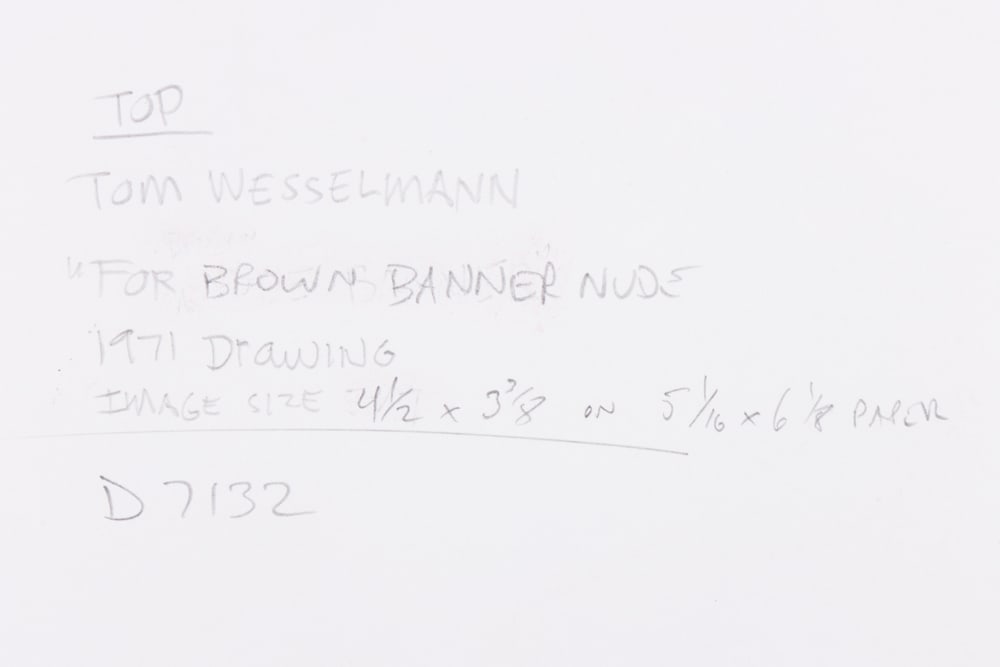 TOP
TOM WESSELMANN
"FOR BROWN BANNER NUDE
1971 DrawING
IMAGE SIZE 4 1/2 x 3 3/8 ON 5 1/16 x 6 1/8 PAPER
D 7132